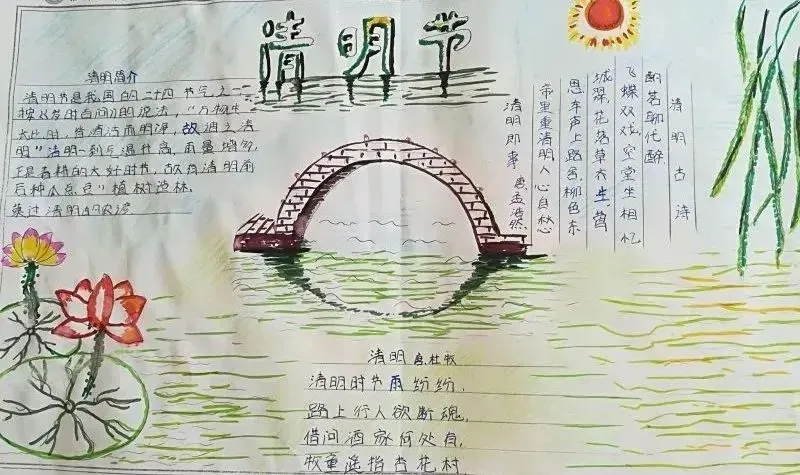 清明节
清明简介
清明节是我国的二十四节气之一
按《岁时百问》的说法，"万物生
此时，皆清洁而明净，故谓之清
明"清明一到气温升高，雨量增多，
正是春耕的大好时节，故有清明前
后种瓜点豆"植树造林，
莫过清明的农谚
清明古诗
酌茗聊代醉
飞蝶双戏，空堂坐相忆
城翠，花落草木生莺
思 车声上路合，柳色东
帝里重清明，人心自愁
清明即事 唐孟浩然
清明 唐杜牧
清明时节雨纷纷，
路上行人欲断魂，
借问酒家何处有，
牧童遥指杏花村